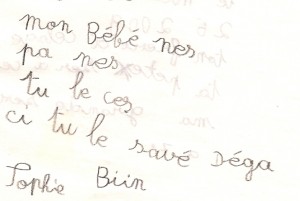 mon Bébé nes
pa nes
tu le ces
ci tu le savé Déga
Sophie Biin